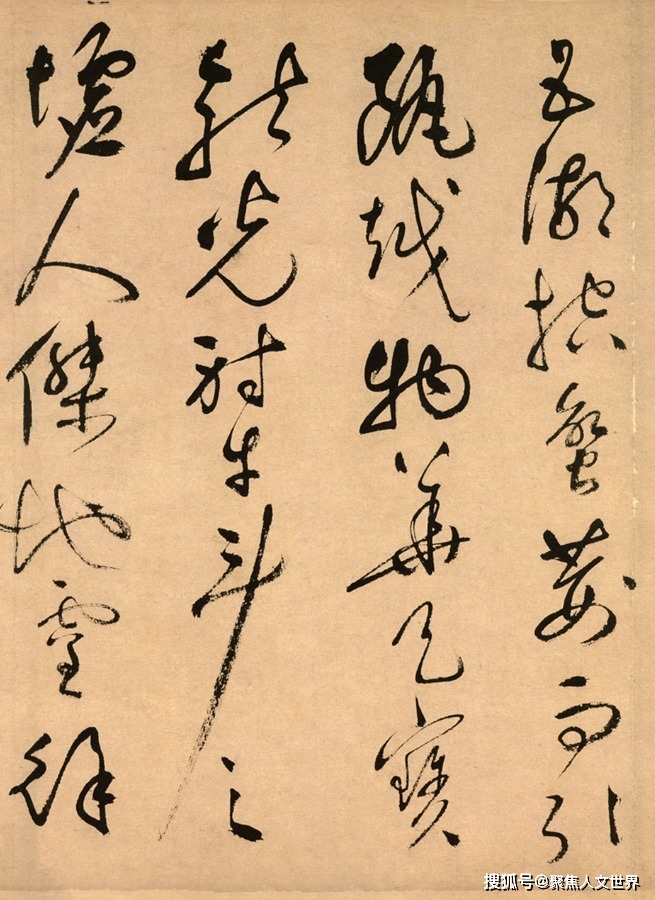 五湖控蠻荊而引
甌越物華天寶
龍光射牛斗之
墟人傑地靈徐
搜狐号@聚焦人文世界